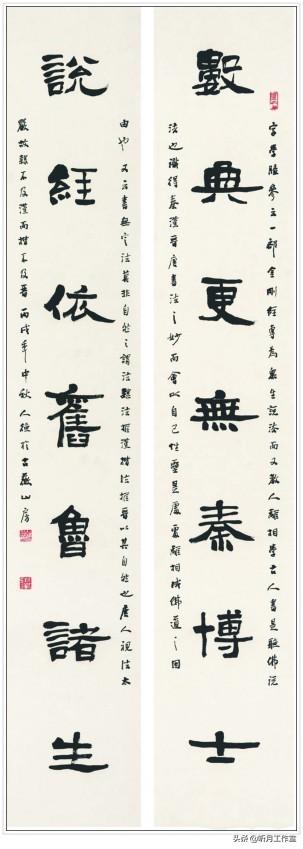 數典更無秦博士
字學臨參之一部金剛經專為衆生說法而又教人離相學古人書是聽佛說
法也識得秦漢晉唐書法之妙而會以自己性靈是處處離相成佛道之因
說經依舊魯諸生
由也又云書無定法莫非自然之謂法隸法推漢楷法推晉以其自然也唐人視法太
嚴故隸不及漢而楷不及晉丙戌年中秋人於古山房
头条@昕月工作室